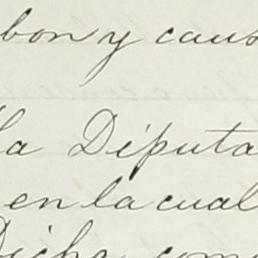 bon y caus
la Diputa
en la cual
Dicha com